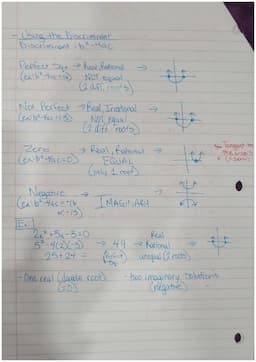 - Using the Discriminant
Discriminant: b² - 4ac
Perfect Sq. → Real, Rational →
(ex: b²-4ac=16) NOT equal
(2 diff. roots)
Not Perfect → Real, Irrational →
(ex: b²-4ac=13) NOT equal
(2 diff. roots)
Zero → Real, Rational →
(ex: b²-4ac=0) EQUAL
(only 1 root)
Negative → IMAGINARY →
(ex: b²-4ac=-16
Ex:
2x²+5x-3=0
5²-4(2)(-3) → 49 → Real
Rational →
25+24 = unequal (2 roots)
- One real (double root) - two imaginary solutions
(=0) (negative)